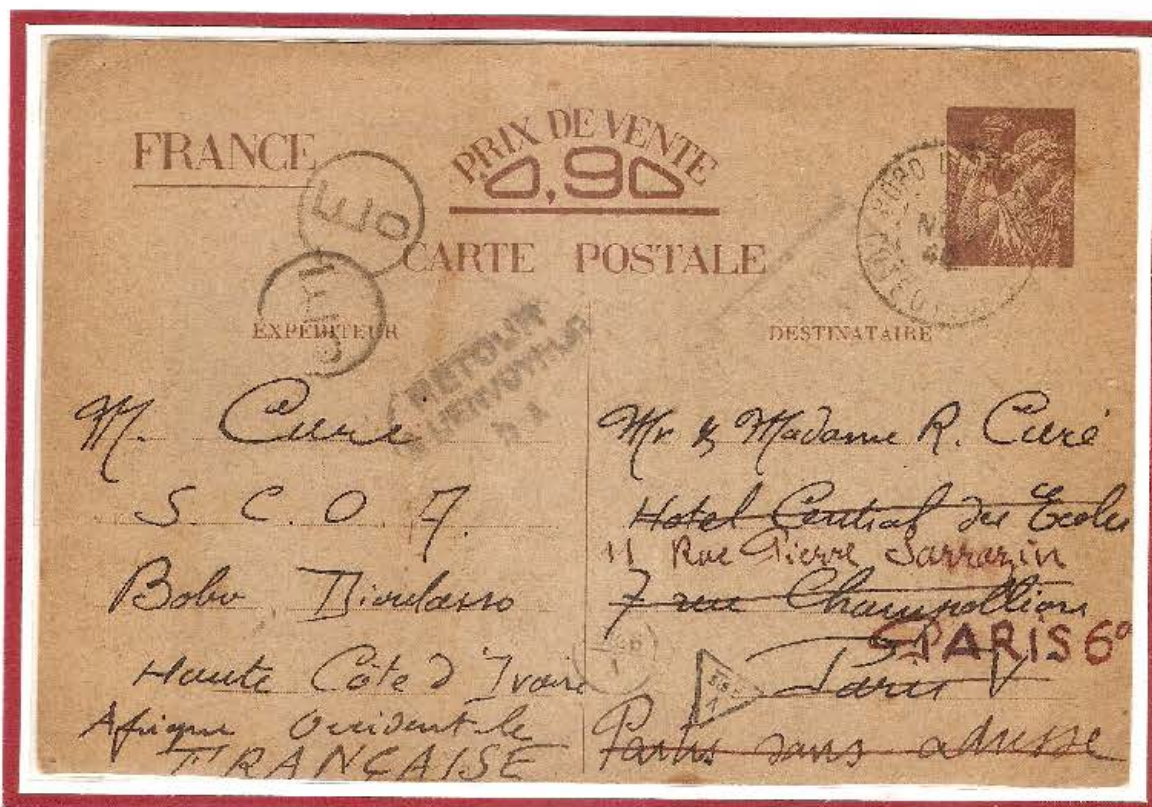 FRANCE
PRIX DE VENTE
0,90
CARTE POSTALE
EXPÉDITEUR
DESTINATAIRE
RETOUR
À L'ENVOYEUR
M. Curé
S. C. O. A.
Bobo Dioulasso
Haute Côte d'Ivoire
Afrique Occident le
FRANÇAISE
Mr & Madame R. Curé
Hotel Central des Ecoles
11 Rue Pierre Sarrazin
7 rue Champollion
PARIS 6e
Paris V
Partis sans adresse